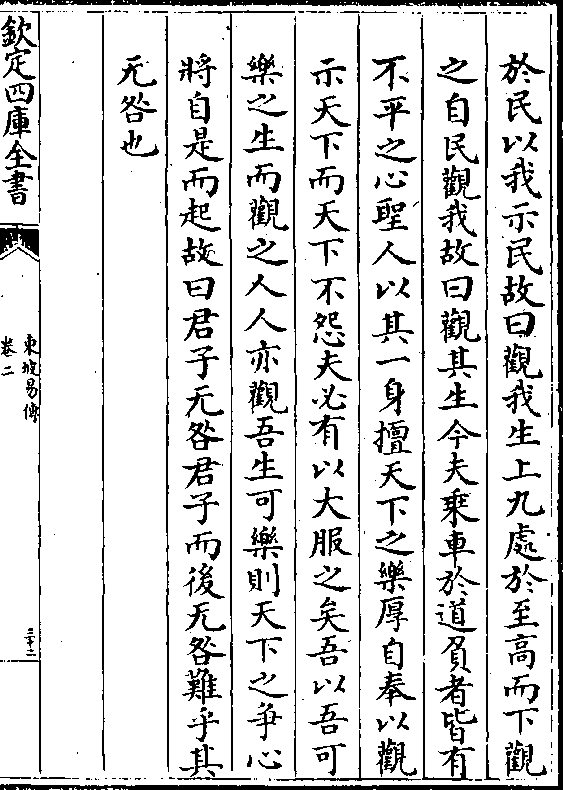 於民以我示民故曰觀我生上九處於至高而下觀
之自民觀我故曰觀其生今夫乘車於道貧者皆有
不平之心聖人以其一身擅天下之樂厚自奉以觀
示天下而天下不怨夫必有以大服之矣吾以吾可
樂之生而觀之人人亦觀吾生可樂則天下之爭心
將自是而起故曰君子无咎君子而後无咎難乎其
无咎也
欽定四庫全書
東坡易傳
卷二
三十二